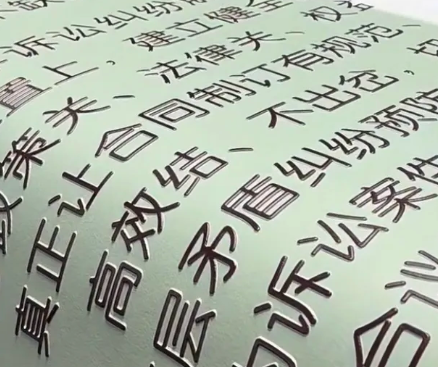 诉讼纠纷
置上、建立健全
策关、法律关、权
真正让合同制订有规范、
高效结、不出岔、
层矛盾纠纷预防
诉讼案件
合